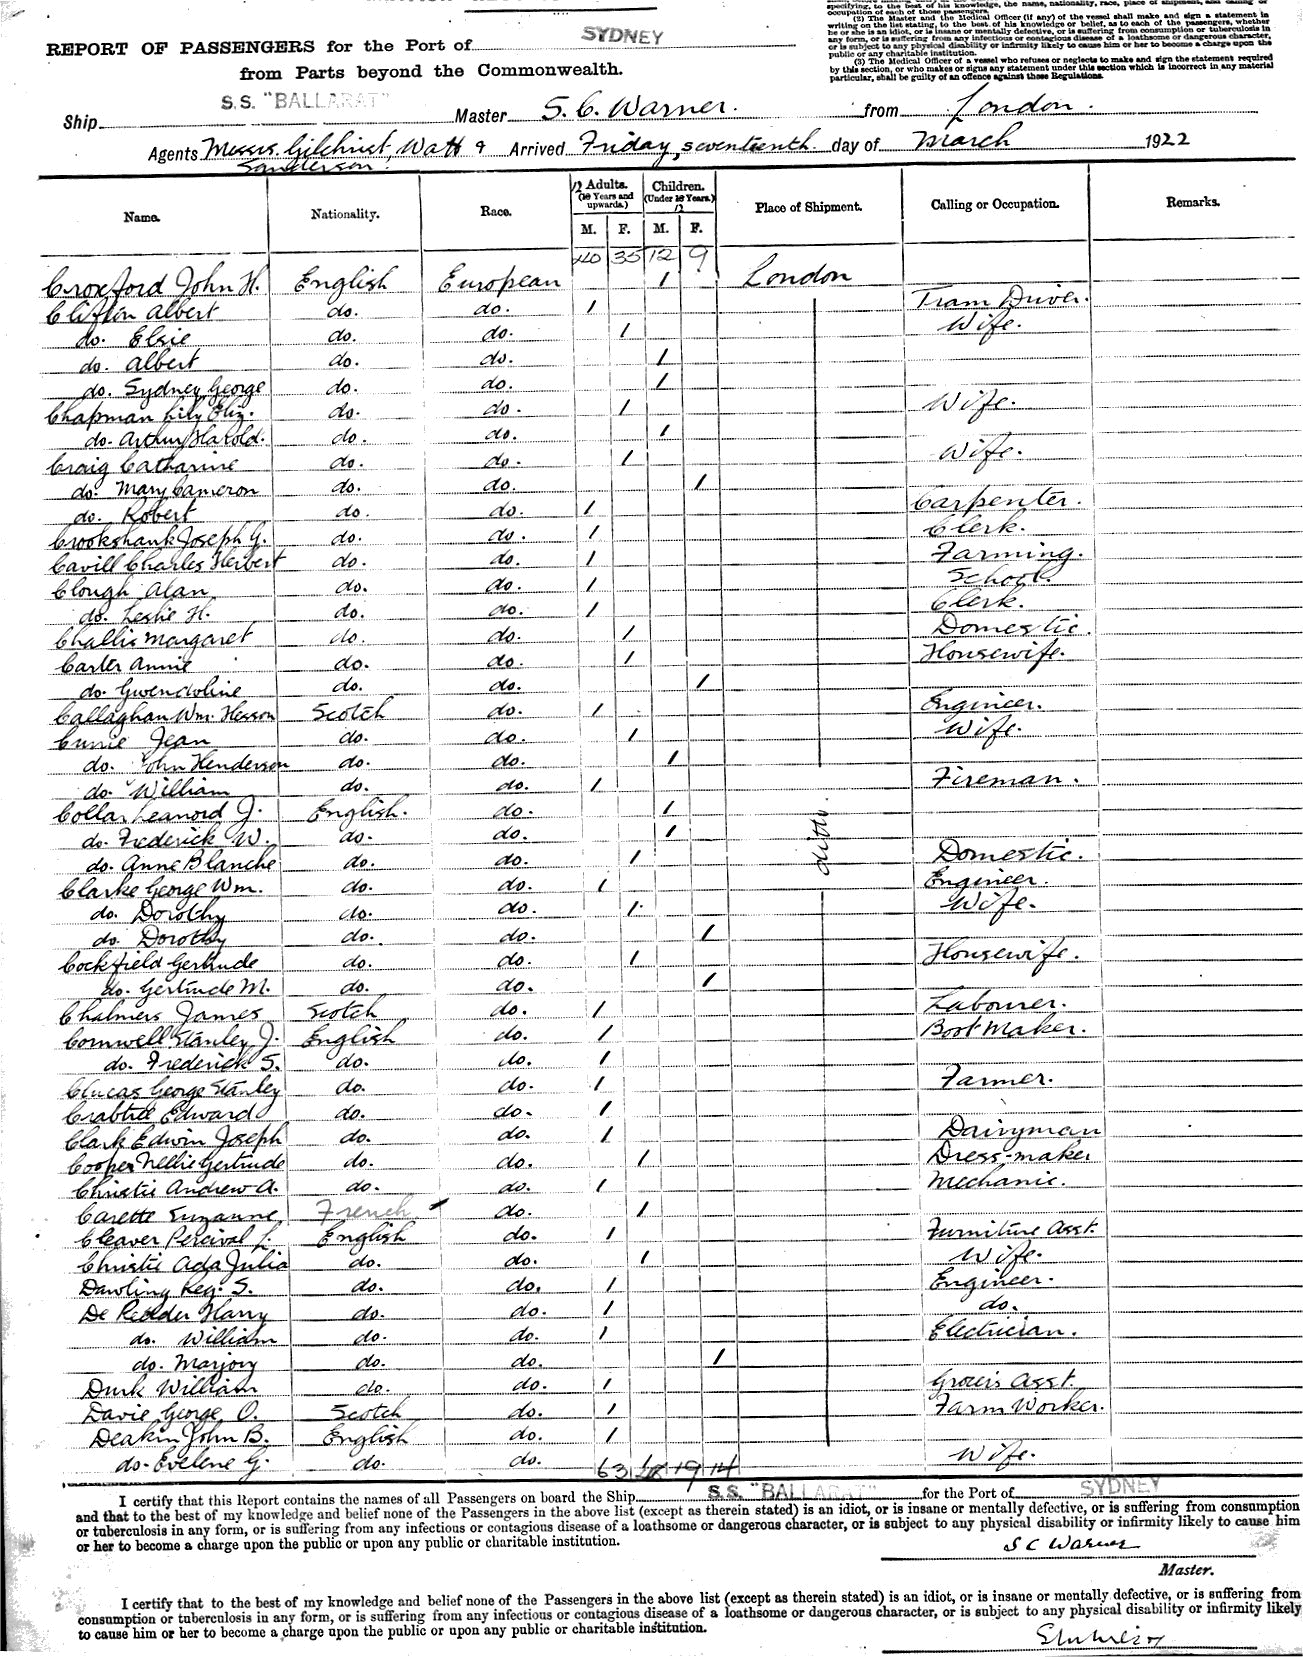 specifying, to the best of his knowledge, the name, nationality, race, place of shipment, and calling or
occupation of each of those passengers.
(2) The Master and the Medical Officer (if any) of the vessel shall make and sign a statement in
writing on the list stating, to the best of his knowledge or belief, as to each of the passengers, whether
he or she is an idiot, or is insane or mentally defective, or is suffering from consumption or tuberculosis in
any form, or is suffering from any infectious or contagious disease of a loathsome or dangerous character,
or is subject to any physical disability or infirmity likely to cause him or her to become a charge upon the
public or any public or charitable institution.
(3) The Medical Officer of a vessel who refuses or neglects to make and sign the statement required
by this section, or who makes or signs any statement under this section which is incorrect in any material
particular, shall be guilty of an offence against these Regulations.
REPORT OF PASSENGERS for the Port of SYDNEY
from Parts beyond the Commonwealth.
Ship S.S. "BALLARAT" Master S. C. Warner. from London.
Agents Messrs. Gilchrist, Watt & Sanderson. Arrived Friday, seventeenth day of March 1922
Name. Nationality. Race. 12 Adults. (18 Years and upwards.) Children. (Under 18 Years.) 12 Place of Shipment. Calling or Occupation. Remarks.
M. F. M. F.
40 35 12 9
Croxford John H. English European 1 London
Clifton Albert do. do. 1 Tram Driver.
do. Elsie do. do. 1 Wife.
do. Albert do. do. 1
do. Sydney George do. do. 1
Chapman Lily Eliz. do. do. 1 Wife.
do. Arthur Harold. do. do. 1
Craig Catharine do. do. 1 Wife.
do. Mary Cameron do. do. 1
do. Robert do. do. 1 Carpenter.
Crookshank Joseph G. do. do. 1 Clerk.
Cavill Charles Herbert do. do. 1 Farming.
Clough Alan do. do. 1 School.
do. Leslie H. do. do. 1 Clerk.
Challis Margaret do. do. 1 Domestic.
Carter Annie do. do. 1 Housewife.
do. Gwendoline do. do. 1
Callaghan Wm. Hesson Scotch do. 1 Engineer.
Currie Jean do. do. 1 Wife.
do. John Henderson do. do. 1
do. William do. do. 1 Fireman.
Collar Leanord J. English. do. 1
do. Frederick W. do. do. 1 ditto.
do. Anne Blanche do. do. 1 Domestic.
Clarke George Wm. do. do. 1 Engineer.
do. Dorothy do. do. 1 Wife.
do. Dorothy do. do. 1
Cockfield Gertrude do. do. 1 Housewife.
do. Gertrude M. do. do. 1
Chalmers James Scotch do. 1 Labourer.
Cornwell Stanley J. English do. 1 Boot Maker.
do. Frederick S. do. do. 1
Clucas George Stanley do. do. 1 Farmer.
Crabtree Edward do. do. 1
Clark Edwin Joseph do. do. 1 Dairyman
Cooper Nellie Gertrude do. do. 1 Dress-maker
Christie Andrew A. do. do. 1 Mechanic.
Carette Suzanne French do. 1
Cleaver Percival L. English do. 1 Furniture Asst.
Christie Ada Julia do. do. 1 Wife.
Dawling Reg. S. do. do. 1 Engineer.
De Redder Harry do. do. 1 do.
do. William do. do. 1 Electrician.
do. Marjory do. do. 1
Durk William do. do. 1 Grocer's Asst.
Davie George O. Scotch do. 1 Farm Worker.
Deakin John B. English do. 1
do. Evelene G. do. do. Wife.
63 48 19 14
I certify that this Report contains the names of all Passengers on board the Ship S.S. "BALLARAT" for the Port of SYDNEY
and that to the best of my knowledge and belief none of the Passengers in the above list (except as therein stated) is an idiot, or is insane or mentally defective, or is suffering from consumption
or tuberculosis in any form, or is suffering from any infectious or contagious disease of a loathsome or dangerous character, or is subject to any physical disability or infirmity likely to cause him
or her to become a charge upon the public or upon any public or charitable institution.
S C Warner
Master.
I certify that to the best of my knowledge and belief none of the Passengers in the above list (except as therein stated) is an idiot, or is insane or mentally defective, or is suffering from
consumption or tuberculosis in any form, or is suffering from any infectious or contagious disease of a loathsome or dangerous character, or is subject to any physical disability or infirmity likely
to cause him or her to become a charge upon the public or upon any public or charitable institution.